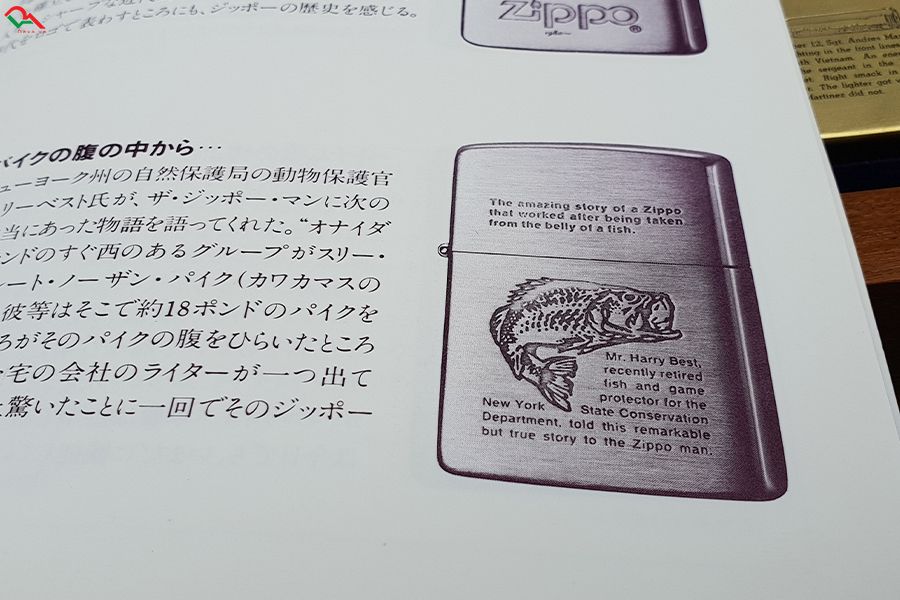 シャープな近代
代を君て表わすところにも、ジッポーの歴史を感じる。
Zippo
®
er 12, Sgt. Andres Ma
ghting in the front lines
th Vietnam. An ene
he sergeant in the
et. Right smack in
r. The lighter got
Martinez did not.
バイクの腹の中から…
ューヨーク州の自然保護局の動物保護官
リーベスト氏が、ザ・ジッポー・マンに次の
当にあった物語を語ってくれた。“オナイダ
ンドのすぐ西のあるグループがスリー・
ート・ノーザン・パイク(カワカマスの
彼等はそこで約18ポンドのパイクを
ろがそのパイクの腹をひらいたところ
宅の会社のライターが一つ出て
驚いたことに一回でそのジッポー
The amazing story of a Zippo
that worked after being taken
from the belly of a fish.
Mr. Harry Best,
recently retired
fish and game
protector for the
New York State Conservation
Department, told this remarkable
but true story to the Zippo man.